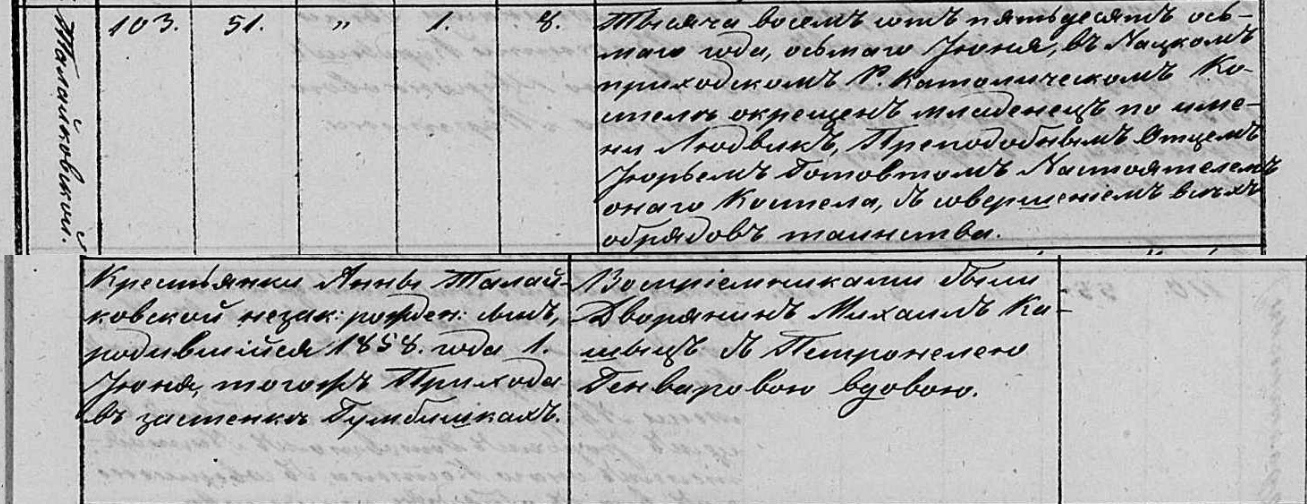 Талайковской.
103. 51. „ 1. 8.
Тысяча восемъ сотъ пятьдесятъ ось-
маго года, осьмаго Іюня, въ Лацкомъ
приходскомъ Р. Католическомъ Ко-
стелѣ окрещенъ младенецъ по име-
ни Людвикъ, Преподобнымъ Отцемъ
Юрьемъ Готовтомъ Настоятелемъ
онаго Костела, съ совершеніемъ всѣхъ
обрядовъ таинства.
Крестьянки Анны Талай-
ковской незак: рожден: сынъ,
родившійся 1858. года 1.
Іюня, тогожъ Прихода
въ застенкѣ Гумбишкахъ.
Воспріемниками были
Дворянинъ Михаилъ Ка-
шыцъ съ Петронелею
Генваровою вдовою.